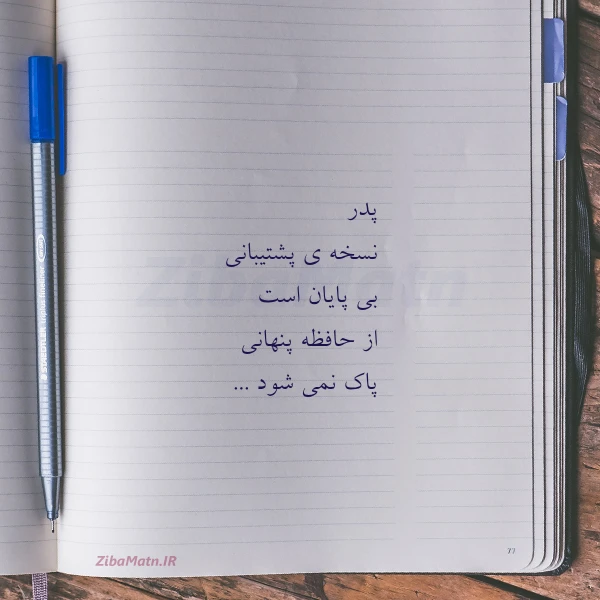 پدر
نسخه ی پشتیبانی
بی پایان است
از حافظه پنهانی
پاک نمی شود ...
ZibaMatn
ZibaMatn.IR
77